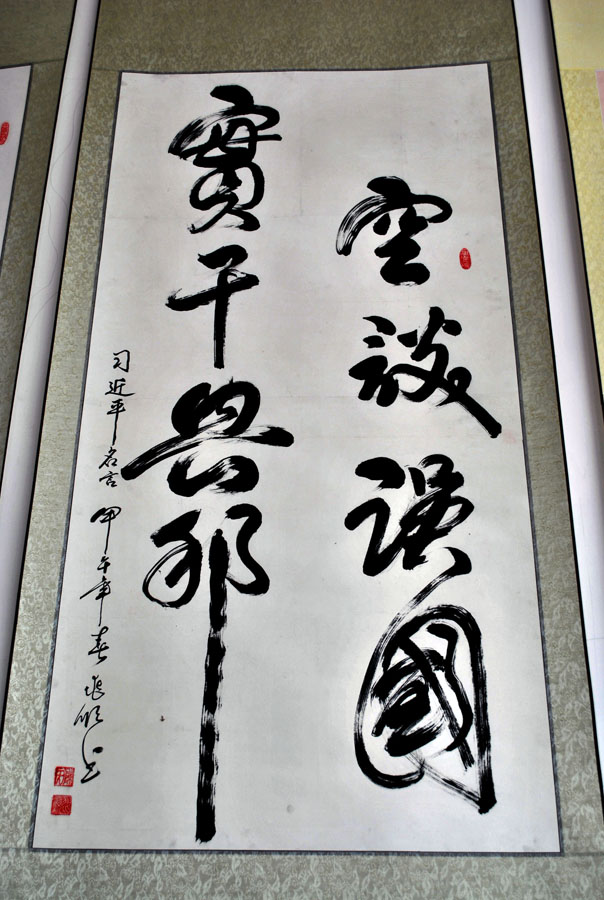 空談誤國
實干興邦
习近平名言 甲午年春